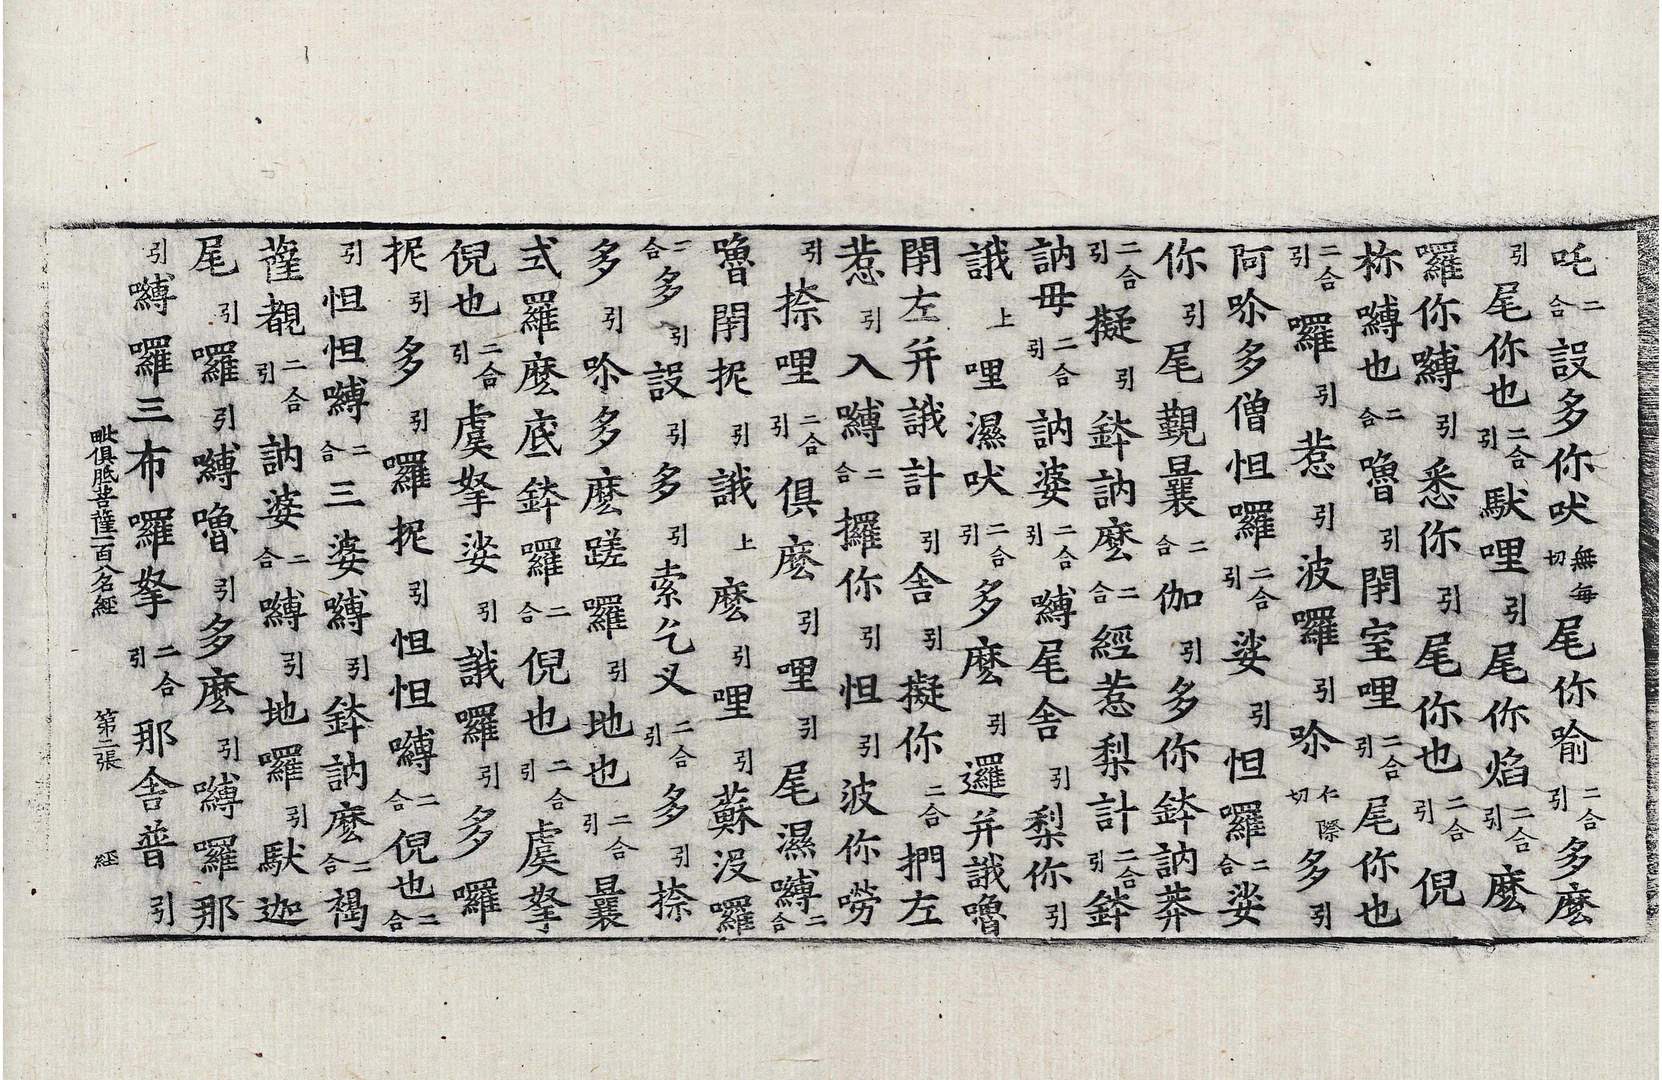 吒二合設多你吠無每切尾你喻二合引多麽
引尾你也二合引馱哩引尾你焰二合引麽
囉你嚩引悉你引尾你也二合引倪
祢嚩也二合嚕引閉室哩二合引尾你也
二合引囉引惹引波囉引㖿仁際切多引
阿㖿多僧怛囉二合引娑引怛囉二合娑
你引尾覲曩二合伽引多你鉢訥莽
二合引擬引鉢訥麽二合經惹梨計二合引鉢
訥毋二合引訥婆二合引嚩尾舍引梨你引
誐上哩濕吠二合引多麽引邏并誐嚕
閉左并誐計引舍引擬你二合捫左
惹引入嚩二合攞你引怛引波你嘮
引捺哩二合引俱麽引哩引尾濕嚩二合
嚕閉抳引誐上麽引哩引蘇没囉
二合多引設引多引索訖叉二合引多引捺
多引㖿多麽蹉囉引地也二合引曩
式羅麽底鉢囉二合倪也二合引虞拏
倪也二合引虞拏娑引誐囉引多囉
抳引多引囉抳引怛怛嚩二合倪也二合
引怛怛嚩二合三婆嚩引鉢訥麽二合褐
薩覩二合引訥婆二合嚩引地囉引馱迦
尾引囉引嚩嚕引多麽引嚩囉那
引嚩囉三布囉拏二合引那舍普引
毗俱胝菩薩一百八名經 第二張 經